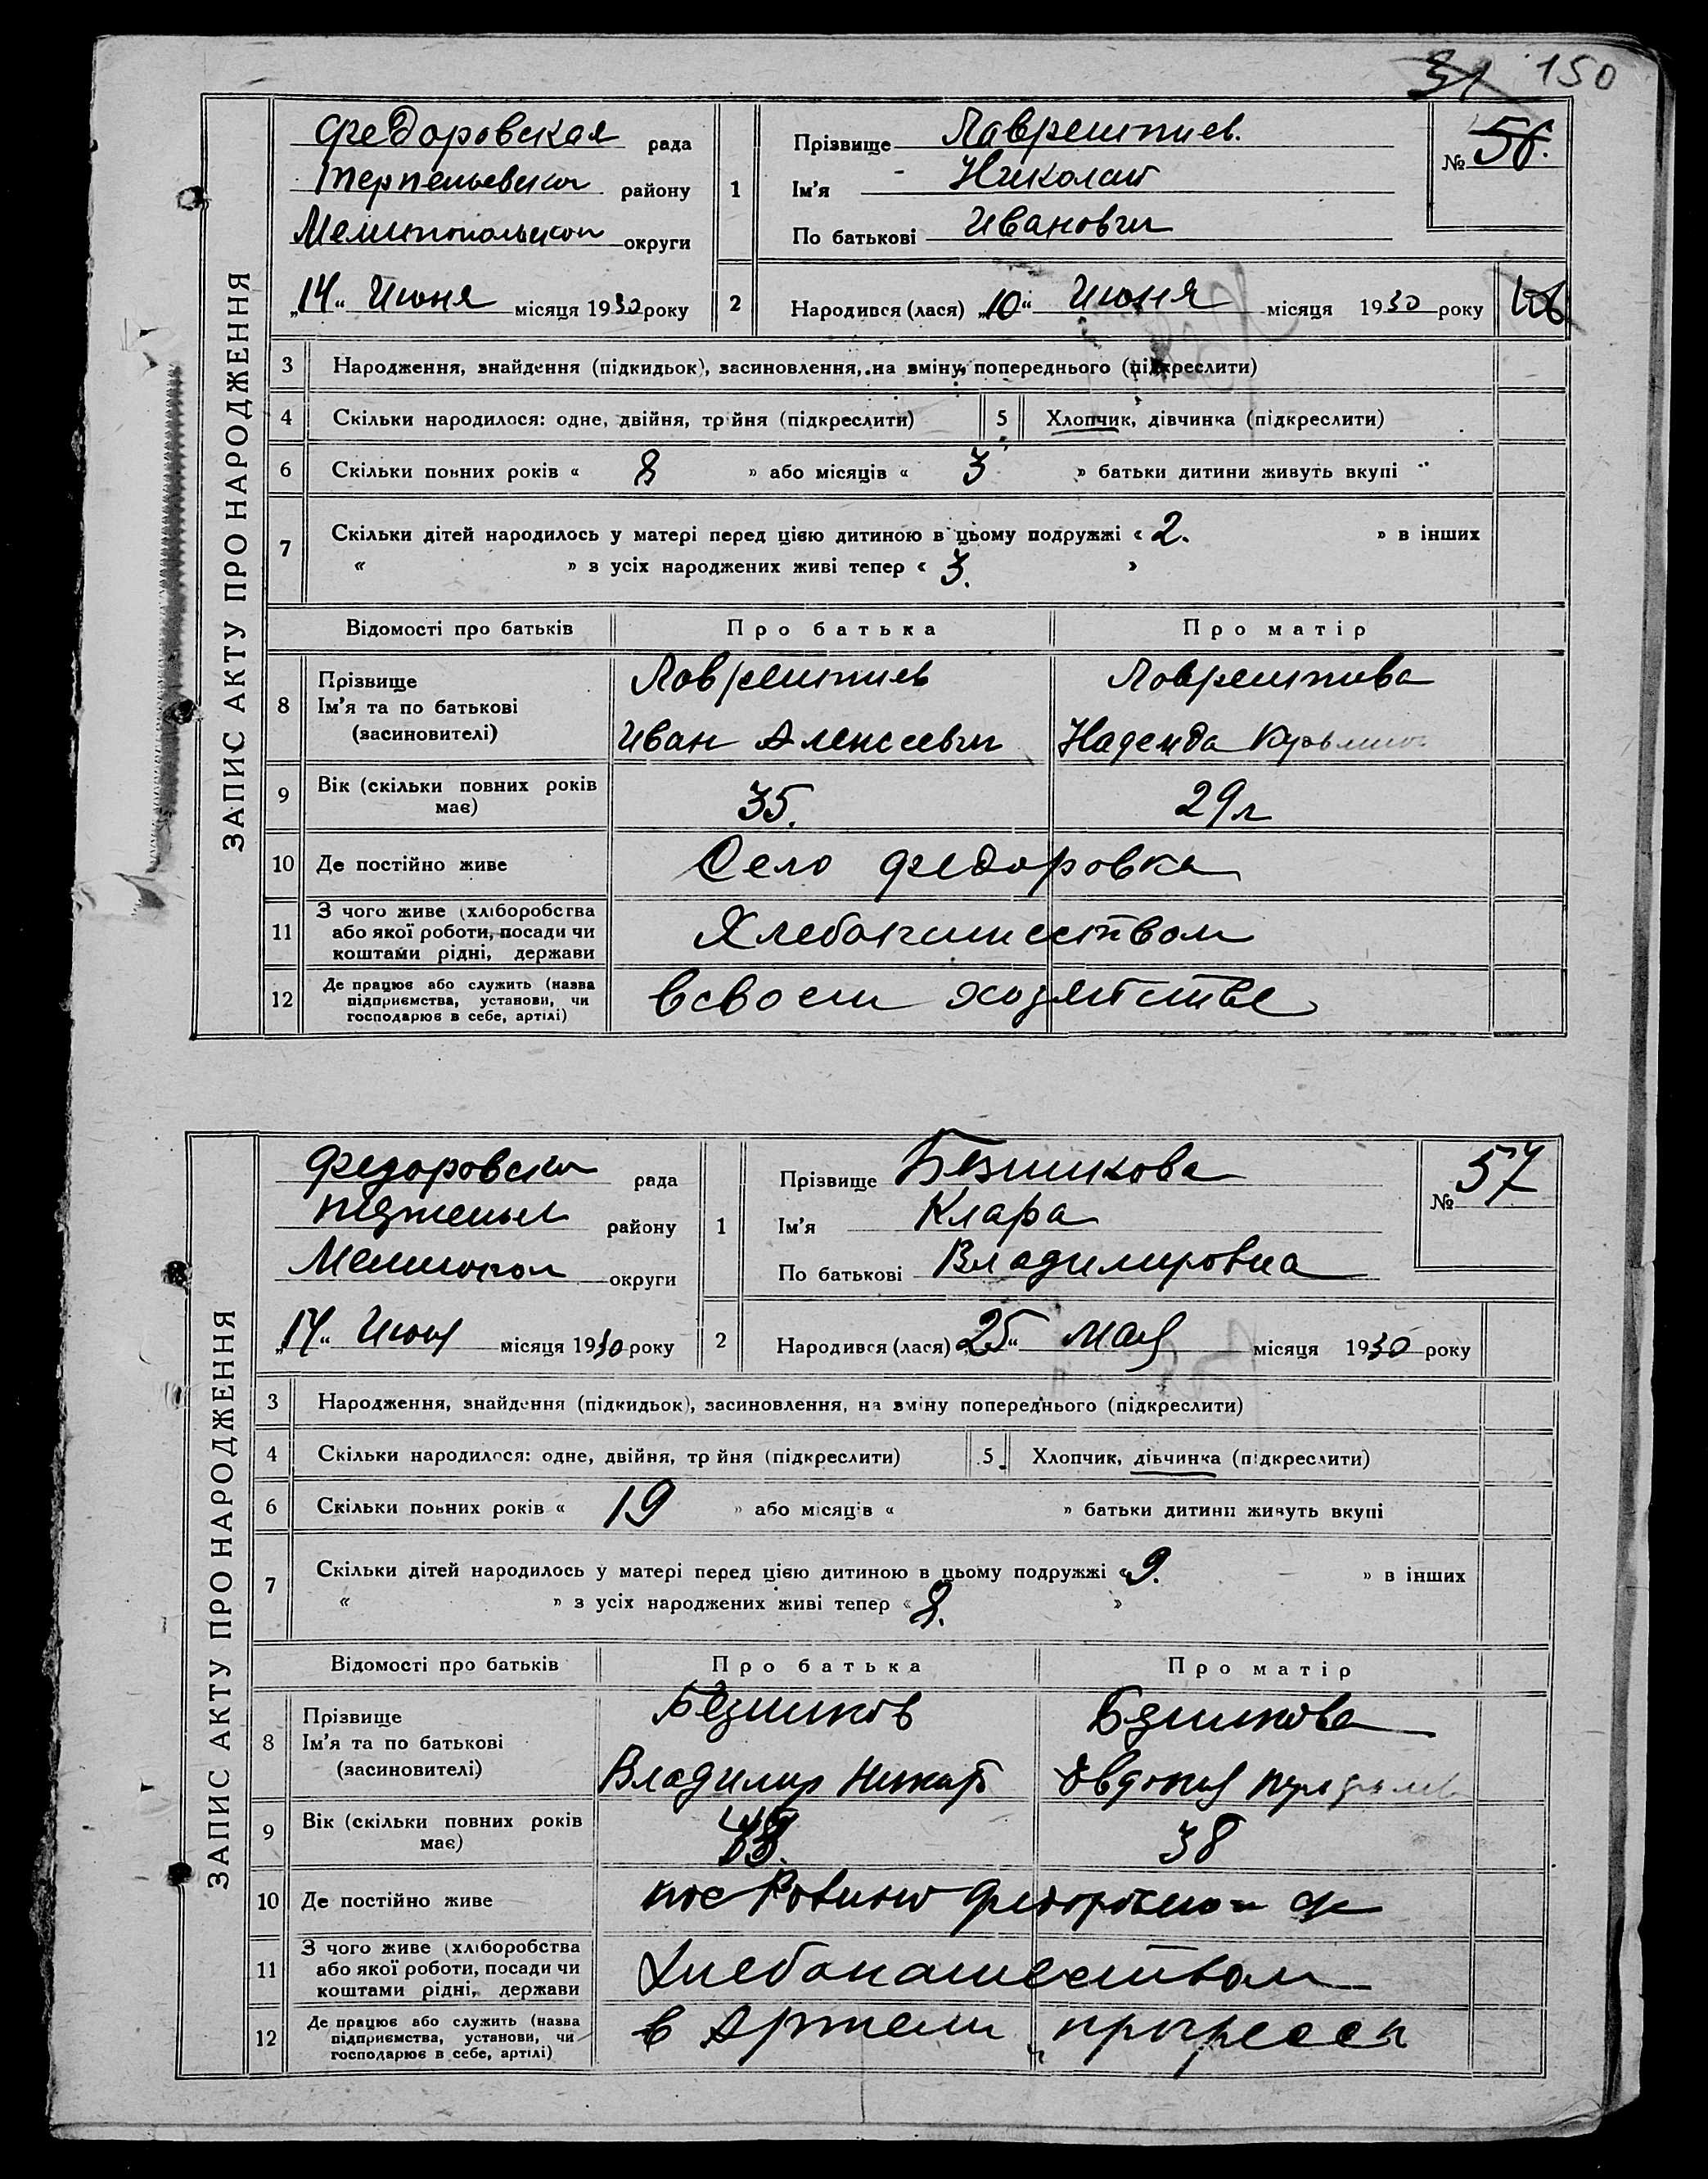 31 150
ЗАПИС АКТУ ПРО НАРОДЖЕННЯ
Федоровская рада
району
Мелитопольской округи
„14“ Июня місяця 1930 року
1
Прізвище Лаврентиев.
Ім'я Николай
По батькові Иванович
№ 56.
2
Народився (лася) „10“ Июня місяця 1930 року
3 Народження, знайдення (підкидьок), засиновлення, на зміну попереднього (підкреслити)
4 Скільки народилося: одне, двійня, трійня (підкреслити) 5 Хлопчик, дівчинка (підкреслити)
6 Скільки повних років « 8 » або місяців « 3 » батьки дитини живуть вкупі
7 Скільки дітей народилось у матері перед цією дитиною в цьому подружжі « 2. » в інших
« » з усіх народжених живі тепер « 3. »
Відомості про батьків Про батька Про матір
8 Прізвище Ім'я та по батькові (засиновителі)
Лаврентиев Лаврентива
Иван Алексеевич Надежда
9 Вік (скільки повних років має) 35. 29 л
10 Де постійно живе Село Федоровка
11 З чого живе (хліборобства або якої роботи, посади чи коштами рідні, держави Хлебопашеством
12 Де працює або служить (назва підприємства, установи, чи господарює в себе, артілі) в своем хозяйстве
ЗАПИС АКТУ ПРО НАРОДЖЕННЯ
рада
району
округи
„14“ Июня місяця 1930 року
1
Прізвище
Ім'я Клара
По батькові Владимировна
№ 57
2
Народився (лася) „25“ Мая місяця 1930 року
3 Народження, знайдення (підкидьок), засиновлення, на зміну попереднього (підкреслити)
4 Скільки народилося: одне, двійня, тр йня (підкреслити) 5 Хлопчик, дівчинка (підкреслити)
6 Скільки повних років « 19 » або місяців « » батьки дитини живуть вкупі
7 Скільки дітей народилось у матері перед цією дитиною в цьому подружжі « 9. » в інших
« » з усіх народжених живі тепер « »
Відомості про батьків Про батька Про матір
8 Прізвище Ім'я та по батькові (засиновителі)
Владимир
9 Вік (скільки повних років має) 38
10 Де постійно живе
11 З чого живе (хліборобства або якої роботи, посади чи коштами рідні, держави Хлебопашеством
12 Де працює або служить (назва підприємства, установи, чи господарює в себе, артілі) в Артели